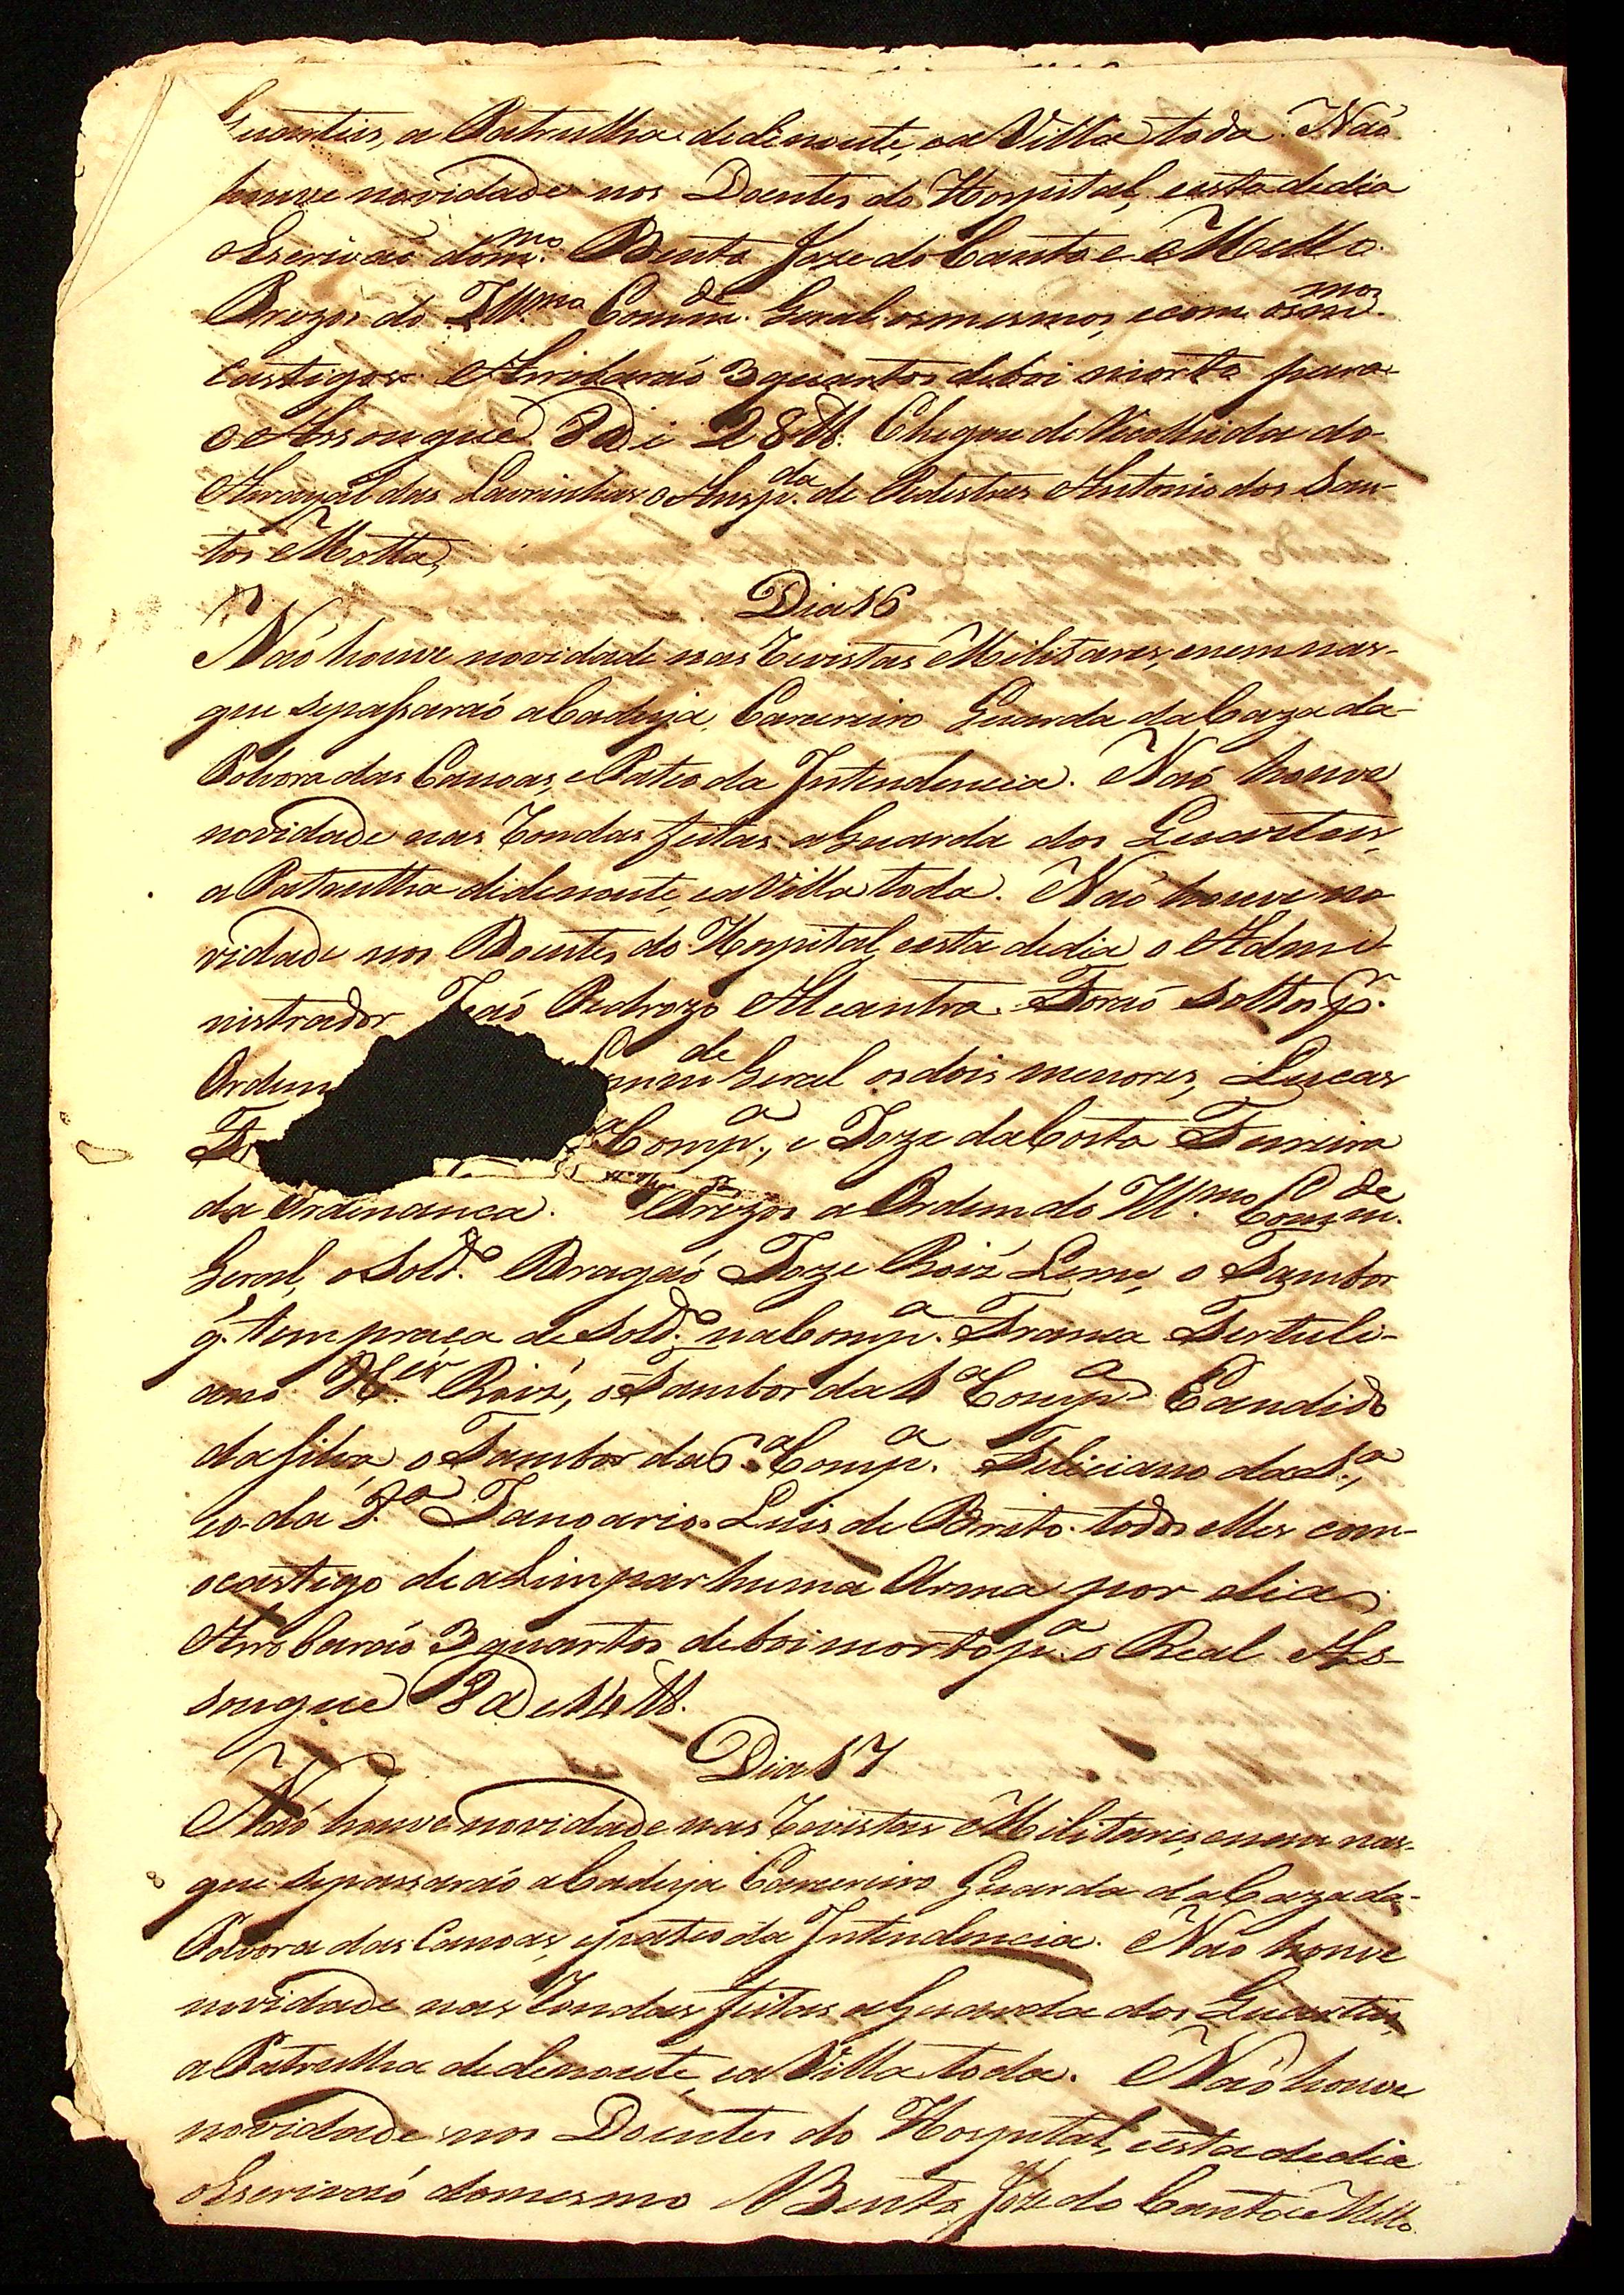 Quarteis, a Patrulha dedenoute, ea Villa toda. Naõ
houve novidade nos Doentes do Hospital, esta dedia
o Escrivaõ dom.mo Bento Joze do Canto e Mello.
Prezos do Ill.mo Comm.de Geral os mesmos, ecom os m.mos
Castigos. Arrobaraõ 3 quartos deboi morto para
o Assougue 8 @ e 28 lb. Chegou de Recolhida do
Arrayal das Lavrinhas o Ansp.da de Pedestres Antonio dos San-
tos Motta,
Dia 16
Naõ houve novidade nas Revistas Militares, enem nas
que sepassaraõ aCadeya, Carcereiro Guarda daCaza da
Polvora das Canoas, ePateo da Intendencia. Naõ houve
novidade nas Rondas feitas aGuarda dos Quarteis,
a Patrulha dedenoute, ea Villa toda. Naõ houve no
vidade nos Doentes do Hospital, esta dedia o Admi
nistrador Joaõ Pedrozo Alcantra. Foraõ Soltos p.r
Ordem Comm.de Geral os dois menores, Lucas
Comp.a, e Joze da Costa Ferreira
da Ordenança. Prezos a Ordem do Ill.mo Comm.de
Geral, o Sold.o Dragaõ Joze Roiz Leme, o Tambor
q. tem praça de Sold.o na Comp.a Franca Tertuli-
ano X.er Roiz, o Tambor da 1.a Comp.a Candido
da Silva o Tambor da 6.a Comp.a Feliciano da S.a,
eo da 8.a Janoario Luis de Brito. todos elles com
ocastigo de alimpar huma Arma por dia.
Arrobaraõ 3 quartos deboi morto p.a o Real As-
sougue 8 @ e 14 lb.
Dia 17
Naõ houve novidade nas Revistas Militares, enem nas
que sepassaraõ aCadeya Carcereiro Guarda daCaza da
Polvora das Canoas, epateo da Intendencia. Naõ houve
novidade nas Rondas feitas aGuarda dos Quarteis,
a Patrulha dedenoute, ea Villa toda. Naõ houve
novidade nos Doentes do Hospital, esta dedia
oEscrivaõ domesmo Bento Joze do Canto e Mello.